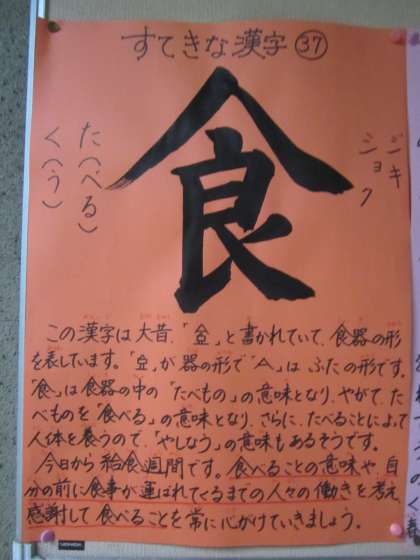 すてきな漢字 ㊲
食
ジキ
ショク
た(べる)
く(う)
この漢字は大昔、「」と書かれていて、食器の形
を表しています。「」が器の形で「亼」は、ふたの形です。
「食」は食器の中の「たべもの」の意味となり、やがて、た
べものを「食べる」の意味となり、さらに、たべることによって
人体を養うので、「やしなう」の意味もあるそうです。
今日から給食週間です。食べることの意味や、自
分の前に食事が運ばれてくるまでの人々の働きを考え、
感謝して食べることを常に心がけていきましょう。